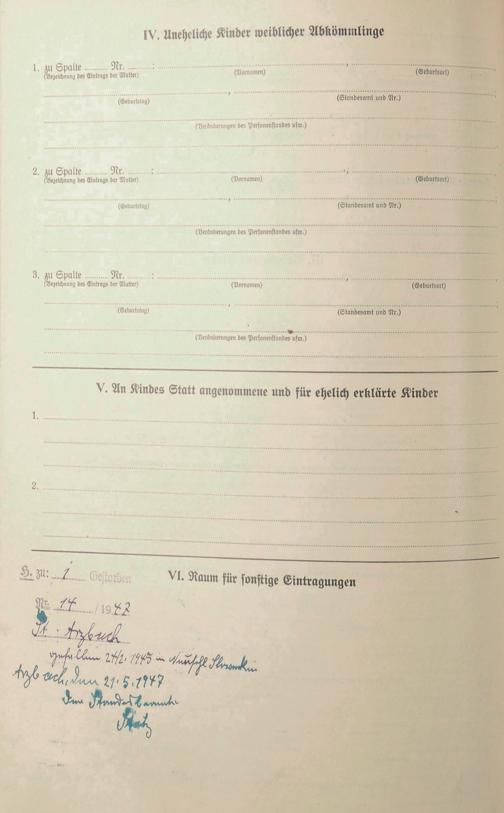 IV. Uneheliche Kinder weiblicher Abkömmlinge
1. zu Spalte ........ Nr. ........ :
(Bezeichnung des Eintrags der Mutter) (Vornamen) (Geburtsort)
(Geburtstag) (Standesamt und Nr.)
(Veränderungen des Personenstandes usw.)
2. zu Spalte ........ Nr. ........ :
(Bezeichnung des Eintrags der Mutter) (Vornamen) (Geburtsort)
(Geburtstag) (Standesamt und Nr.)
(Veränderungen des Personenstandes usw.)
3. zu Spalte ........ Nr. ........ :
(Bezeichnung des Eintrags der Mutter) (Vornamen) (Geburtsort)
(Geburtstag) (Standesamt und Nr.)
(Veränderungen des Personenstandes usw.)
V. An Kindes Statt angenommene und für ehelich erklärte Kinder
1.
2.
H. zu: 1 Gestorben VI. Raum für sonstige Eintragungen
Nr. 14 / 1947
St. Arzbach
gefallen 24/2. 1945 in
Arzbach, den 21.5.1947
Der Standesbeamte